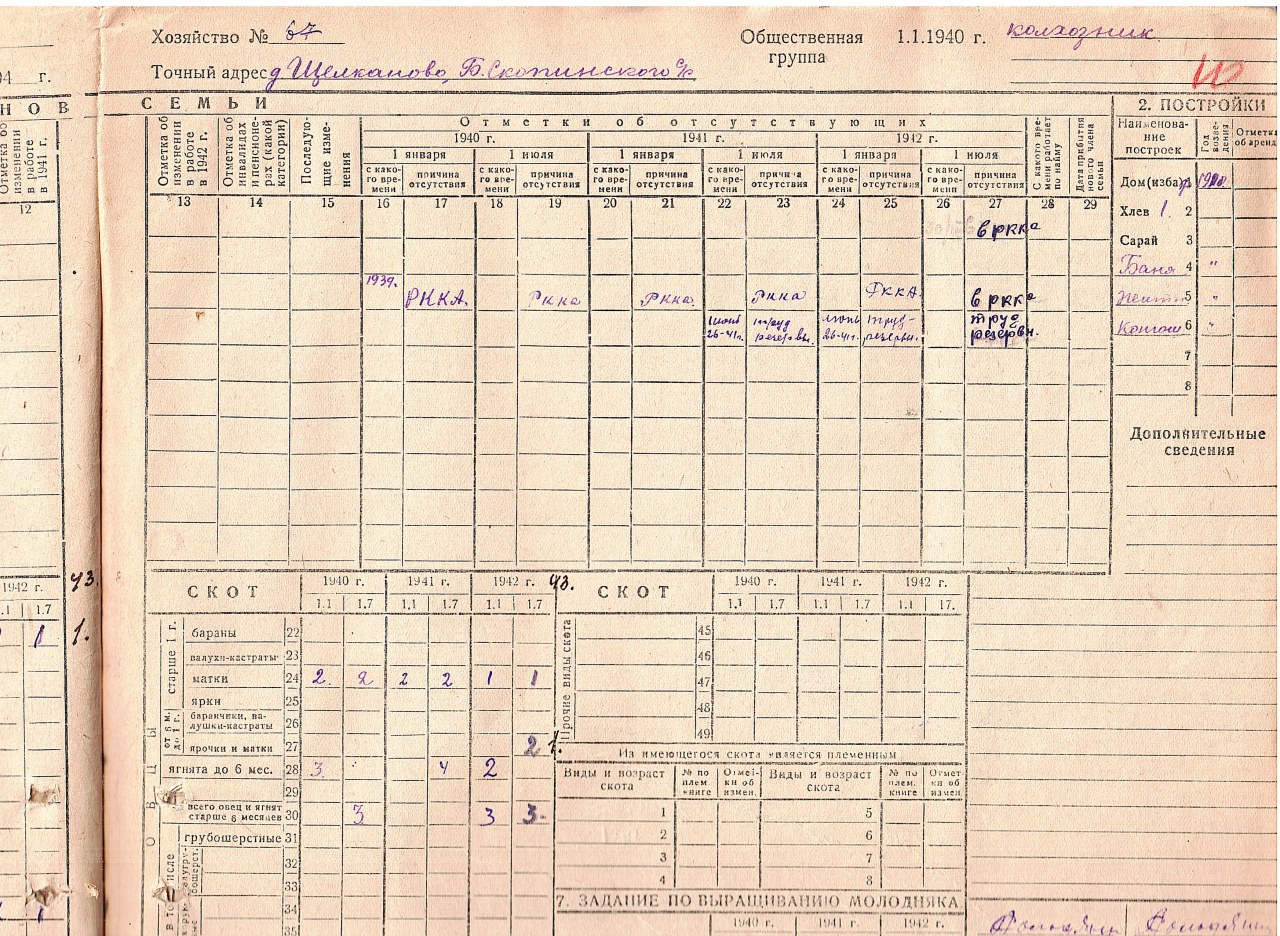 Хозяйство № 67
Общественная группа 1.1.1940 г. колхозник
Точный адрес д Щелканово, Б. Скопинского с/с
94 г.
НОВ СЕМЬИ
2. ПОСТРОЙКИ
Отметка об изменении в работе в 1941 г.
Отметка об изменении в работе в 1942 г.
Отметка об инвалидах и пенсионерах (какой категории)
Последующие изменения
Отметки об отсутствующих
1940 г. 1941 г. 1942 г.
1 января 1 июля 1 января 1 июля 1 января 1 июля
с како-го вре-мени причина отсутствия с како-го вре-мени причина отсутствия с како-го вре-мени причина отсутствия с како-го вре-мени причина отсутствия с како-го вре-мени причина отсутствия с како-го вре-мени причина отсутствия
С какого вре-мени работает по найму
Дата прибытия нового члена семьи
Наименова-ние построек
Год возве-дения
Отметка об аренд
12 13 14 15 16 17 18 19 20 21 22 23 24 25 26 27 28 29
Дом (изба) 1
Хлев 1. 2
Сарай 3
Баня 4 "
5 "
6 "
7
8
в РККА
1939г. РККА Ркка Ркка Ркка РККА в ркка
июнь 26-41г. труд резервы. июнь 26-41г. труд-резервы. труд резервы.
Дополнительные сведения
1942 г. 43.
1.1 1.7
1 1.
СКОТ 1940 г. 1941 г. 1942 г. 43.
1.1 1.7 1.1 1.7 1.1 1.7
ОВЦЫ
старше 1 г.
бараны 22
валухи-кастраты 23
матки 24 2. 2 2 2 1 1
ярки 25
от 6 м. до 1 г.
баранчики, ва-лушки-кастраты 26
ярочки и матки 27 2 1.
ягнята до 6 мес. 28 3. 4 2
29
всего овец и ягнят старше 6 месяцев 30 3 3 3
грубошерстные 31
32
33
34
35
СКОТ 1940 г. 1941 г. 1942 г.
1.1 1.7 1.1 1.7 1.1 17.
Прочие виды скота
45
46
47
48
49
Из имеющегося скота является племенным
Виды и возраст скота № по плем. книге Отмет-ки об измен. Виды и возраст скота № по плем. книге Отмет-ки об измен
1 5
2 6
3 7
4 8
7. ЗАДАНИЕ ПО ВЫРАЩИВАНИЮ МОЛОДНЯКА.
1940 г. 1941 г. 1942 г.